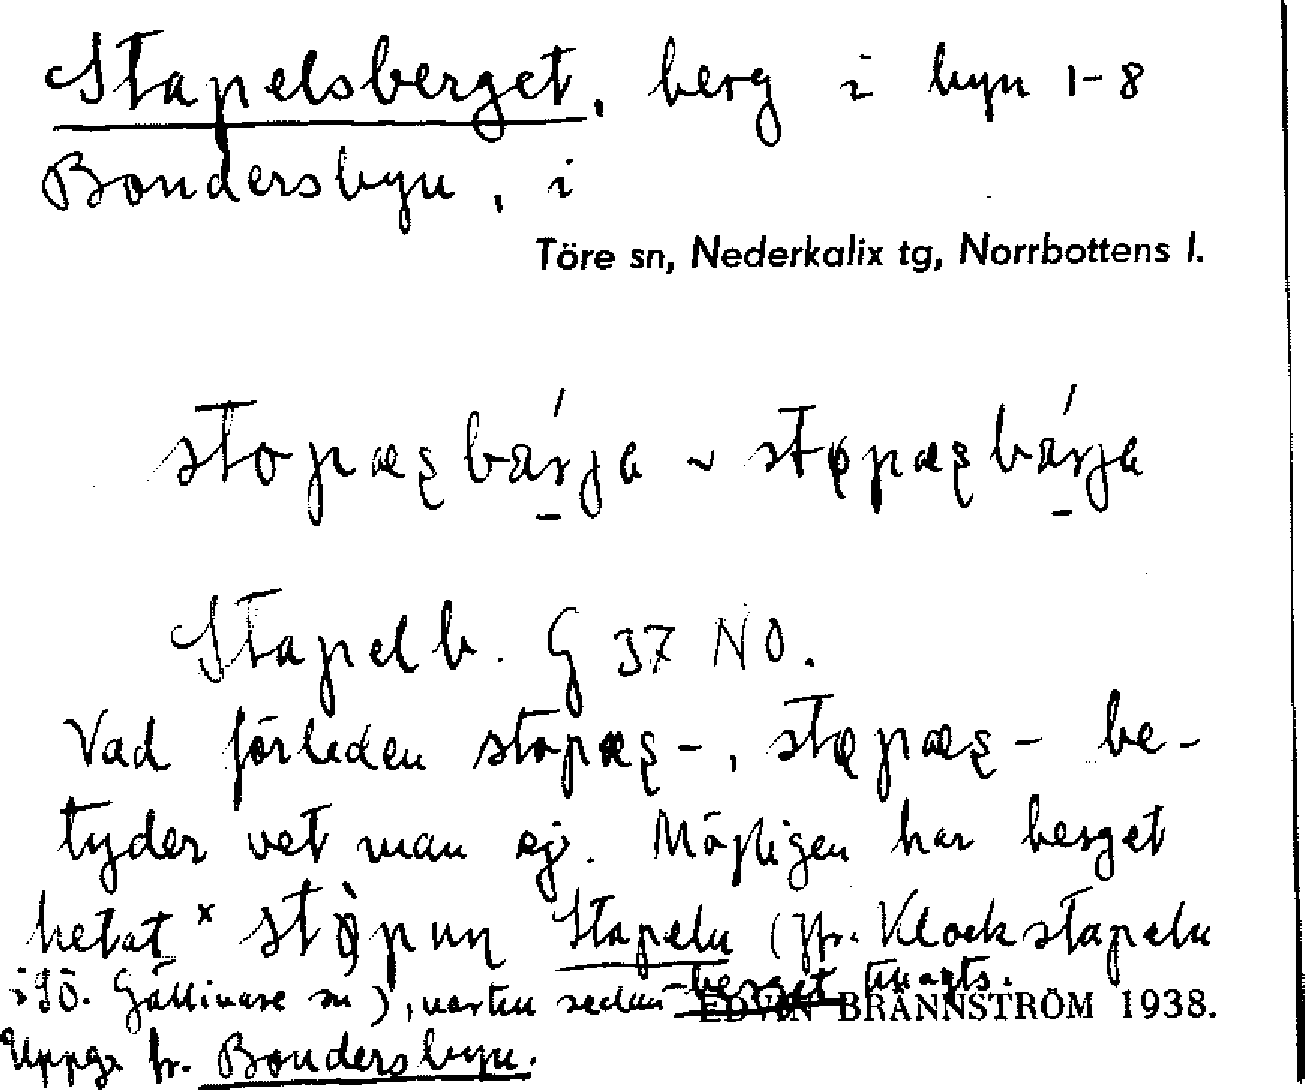 Stapelsberget, berg i byn 1-8
Bondersbyn, i
Töre sn, Nederkalix tg, Norrbottens l.
Stapelb. G 37 NO.
Vad förleden be-
tyder vet man ej. Möjligen har berget
hetat Stapeln (jfr. Klockstapeln
i Gällivare sn), varten sedan -berget tillagts.
EDVIN BRÄNNSTRÖM 1938.
Uppg. fr. Bondersbyn.